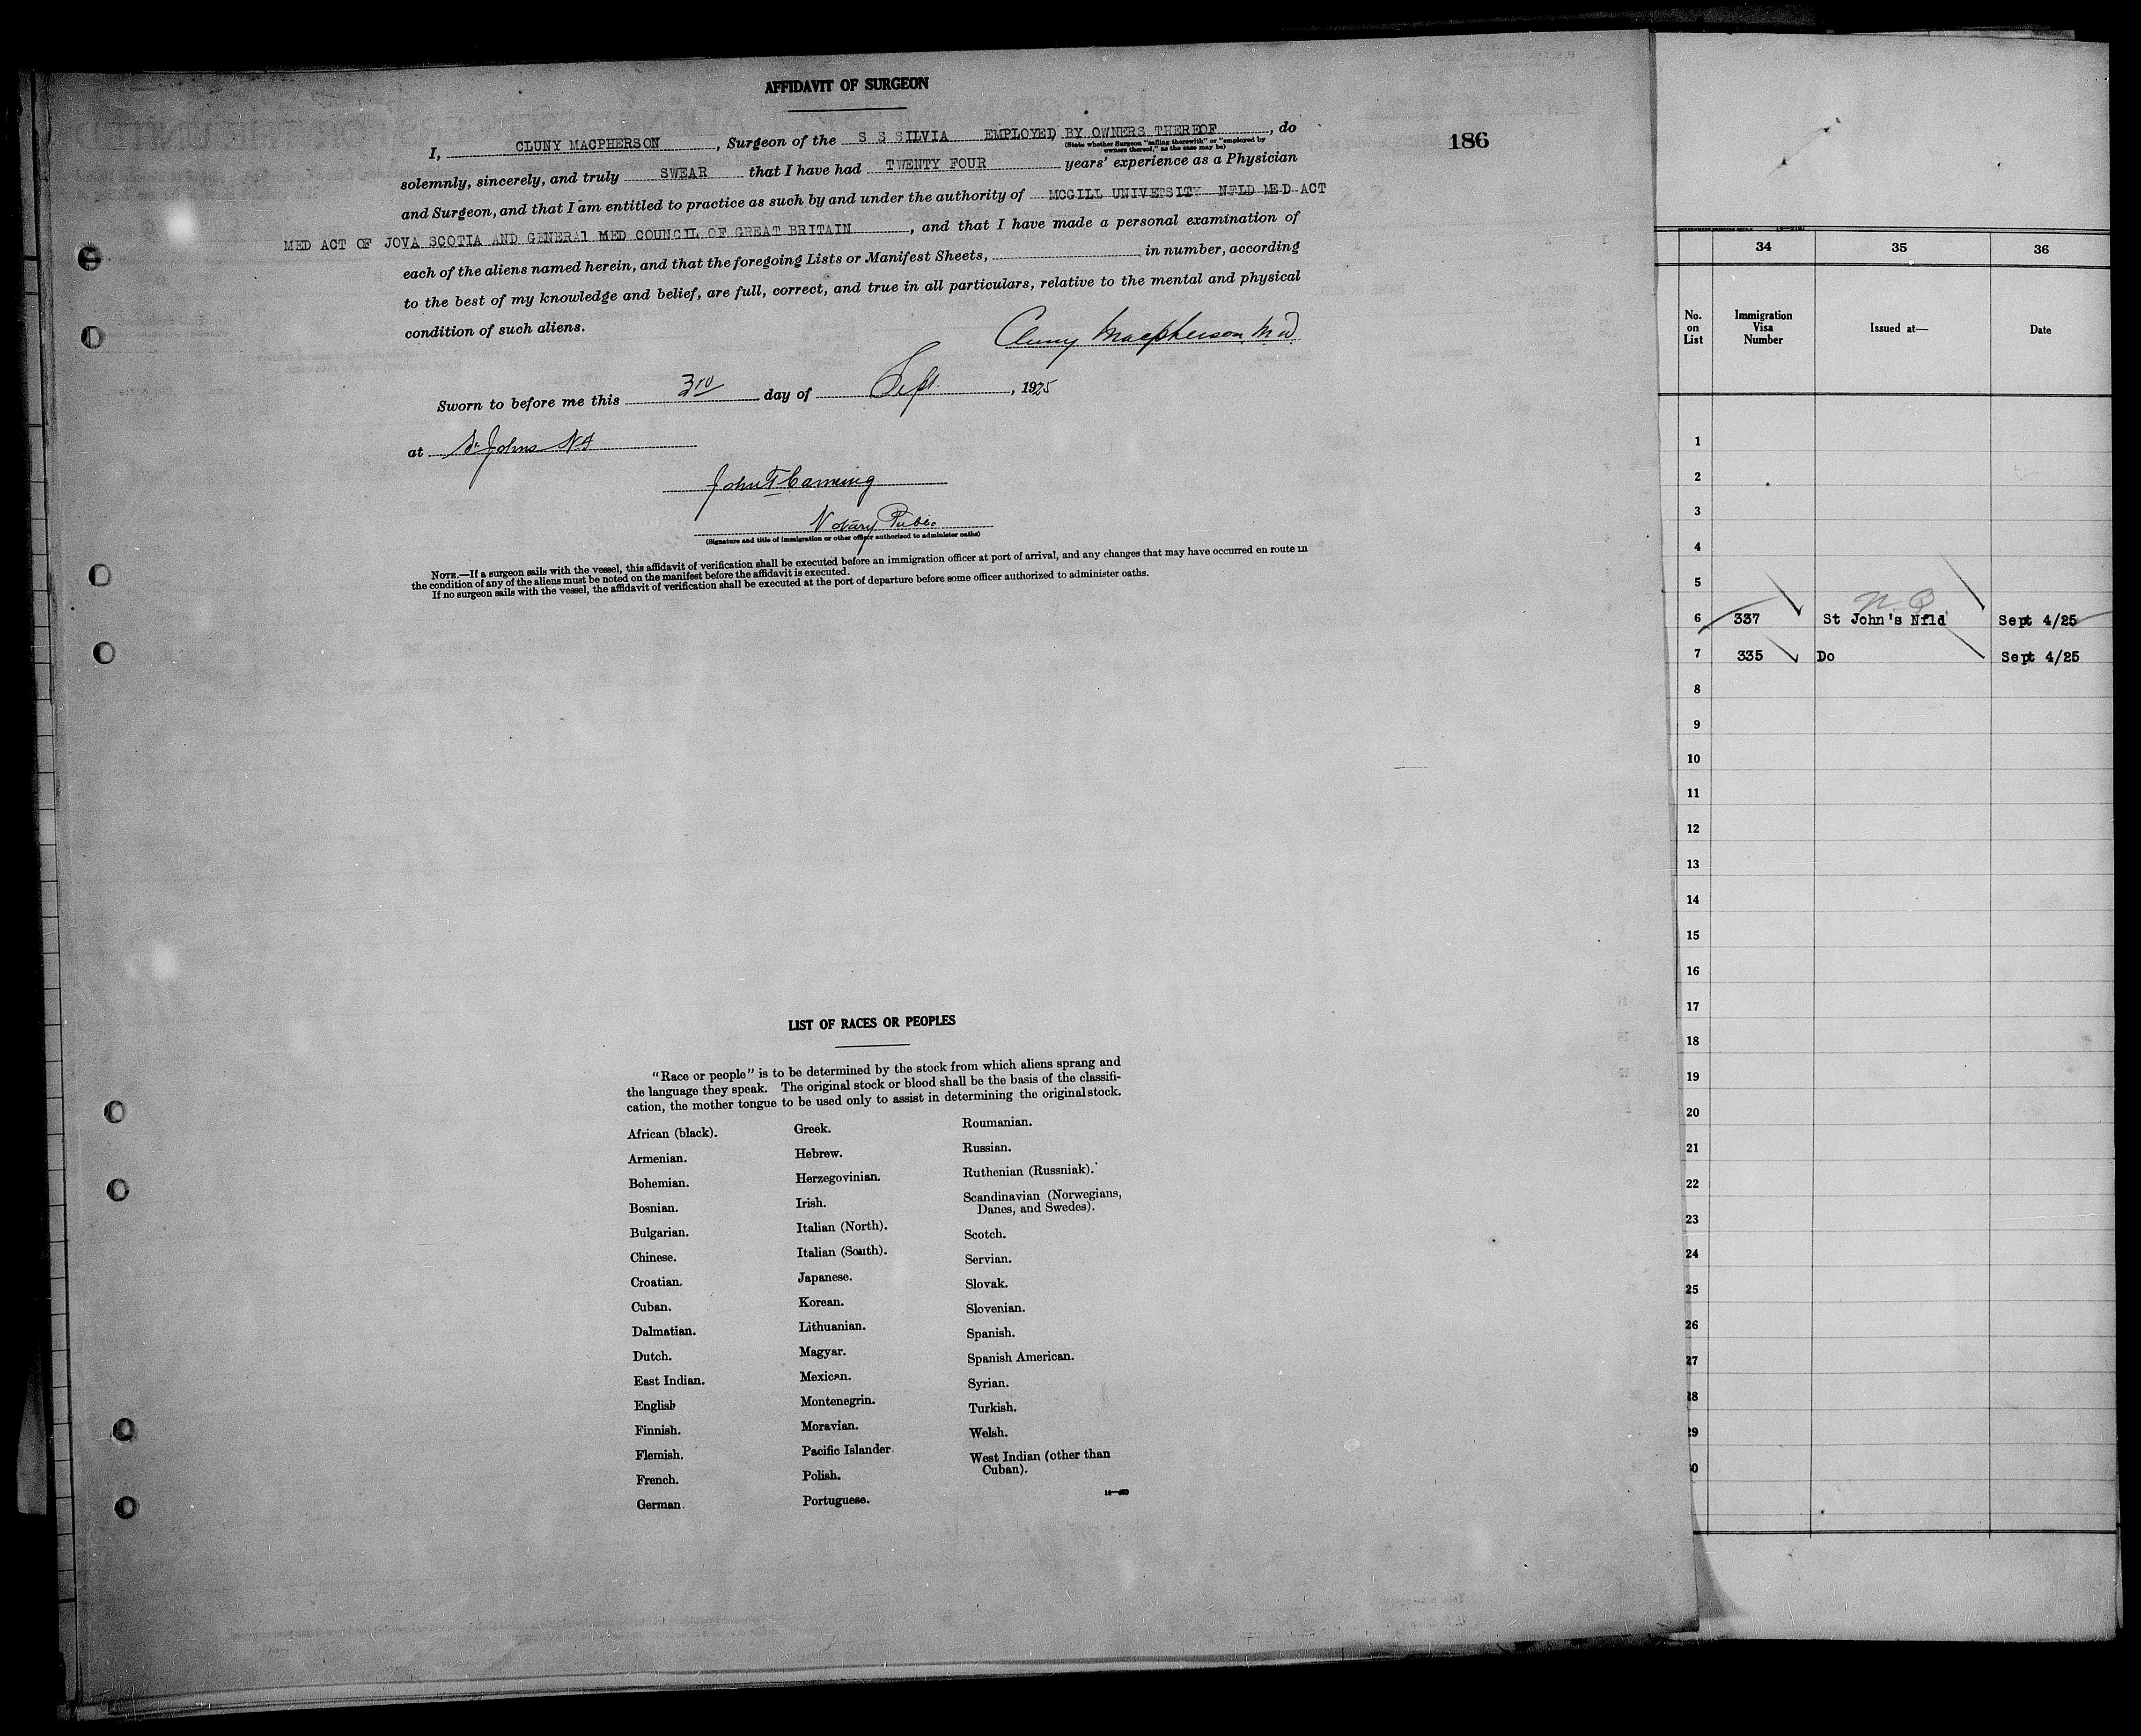 AFFIDAVIT OF SURGEON
186
I, CLUNY MACPHERSON, Surgeon of the S S SILVIA EMPLOYED BY OWNERS THEREOF, do
(State whether Surgeon "sailing therewith" or "employed by
owners thereof," as the case may be)
solemnly, sincerely, and truly SWEAR that I have had TWENTY FOUR years' experience as a Physician
and Surgeon, and that I am entitled to practice as such by and under the authority of MCGILL UNIVETSITY NFLD MED ACT
MED ACT OF JOVA SCOTIA AND GENERAl MED COUNCIL OF GREAT BRITAIN, and that I have made a personal examination of
each of the aliens named herein, and that the foregoing Lists or Manifest Sheets, in number, according
to the best of my knowledge and belief, are full, correct, and true in all particulars, relative to the mental and physical
condition of such aliens.
Cluny Macpherson M.D.
Sworn to before me this 3rd day of Sept., 1925
at St Johns Nfd
John T Canning
Notary Public
(Signature and title of immigration or other officer authorized to administer oaths)
NOTE.—If a surgeon sails with the vessel, this affidavit of verification shall be executed before an immigration officer at port of arrival, and any changes that may have occurred en route in
the condition of any of the aliens must be noted on the manifest before the affidavit is executed.
If no surgeon sails with the vessel, the affidavit of verification shall be executed at the port of departure before some officer authorized to administer oaths.
LIST OF RACES OR PEOPLES
"Race or people" is to be determined by the stock from which aliens sprang and
the language they speak. The original stock or blood shall be the basis of the classifi-
cation, the mother tongue to be used only to assist in determining the original stock.
African (black).
Armenian.
Bohemian.
Bosnian.
Bulgarian.
Chinese.
Croatian.
Cuban.
Dalmatian.
Dutch.
East Indian.
English
Finnish.
Flemish.
French.
German.
Greek.
Hebrew.
Herzegovinian.
Irish.
Italian (North).
Italian (South).
Japanese.
Korean.
Lithuanian.
Magyar.
Mexican.
Montenegrin.
Moravian.
Pacific Islander.
Polish.
Portuguese.
Roumanian.
Russian.
Ruthenian (Russniak).
Scandinavian (Norwegians,
Danes, and Swedes).
Scotch.
Servian.
Slovak.
Slovenian.
Spanish.
Spanish American.
Syrian.
Turkish.
Welsh.
West Indian (other than
Cuban).
34 35 36
No. on List Immigration Visa Number Issued at— Date
1
2
3
4
5
N.Q.
6 337 St John's Nfld Sept 4/25
7 335 Do Sept 4/25
8
9
10
11
12
13
14
15
16
17
18
19
20
21
22
23
24
25
26
27
28
29
30